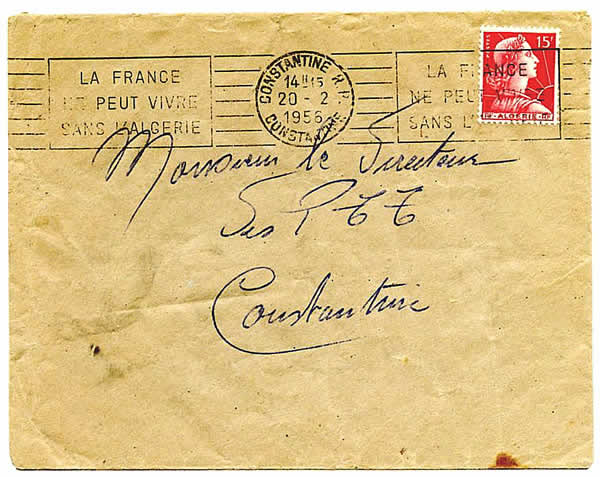 LA FRANCE
NE PEUT VIVRE
SANS L'ALGERIE
CONSTANTINE R.P.
14H15
20 - 2
1956
CONSTANTINE
LA FRANCE
NE PEUT
SANS L'
POSTES
15F
RF ALGERIE RF
Monsieur le Directeur
des P T T
Constantine